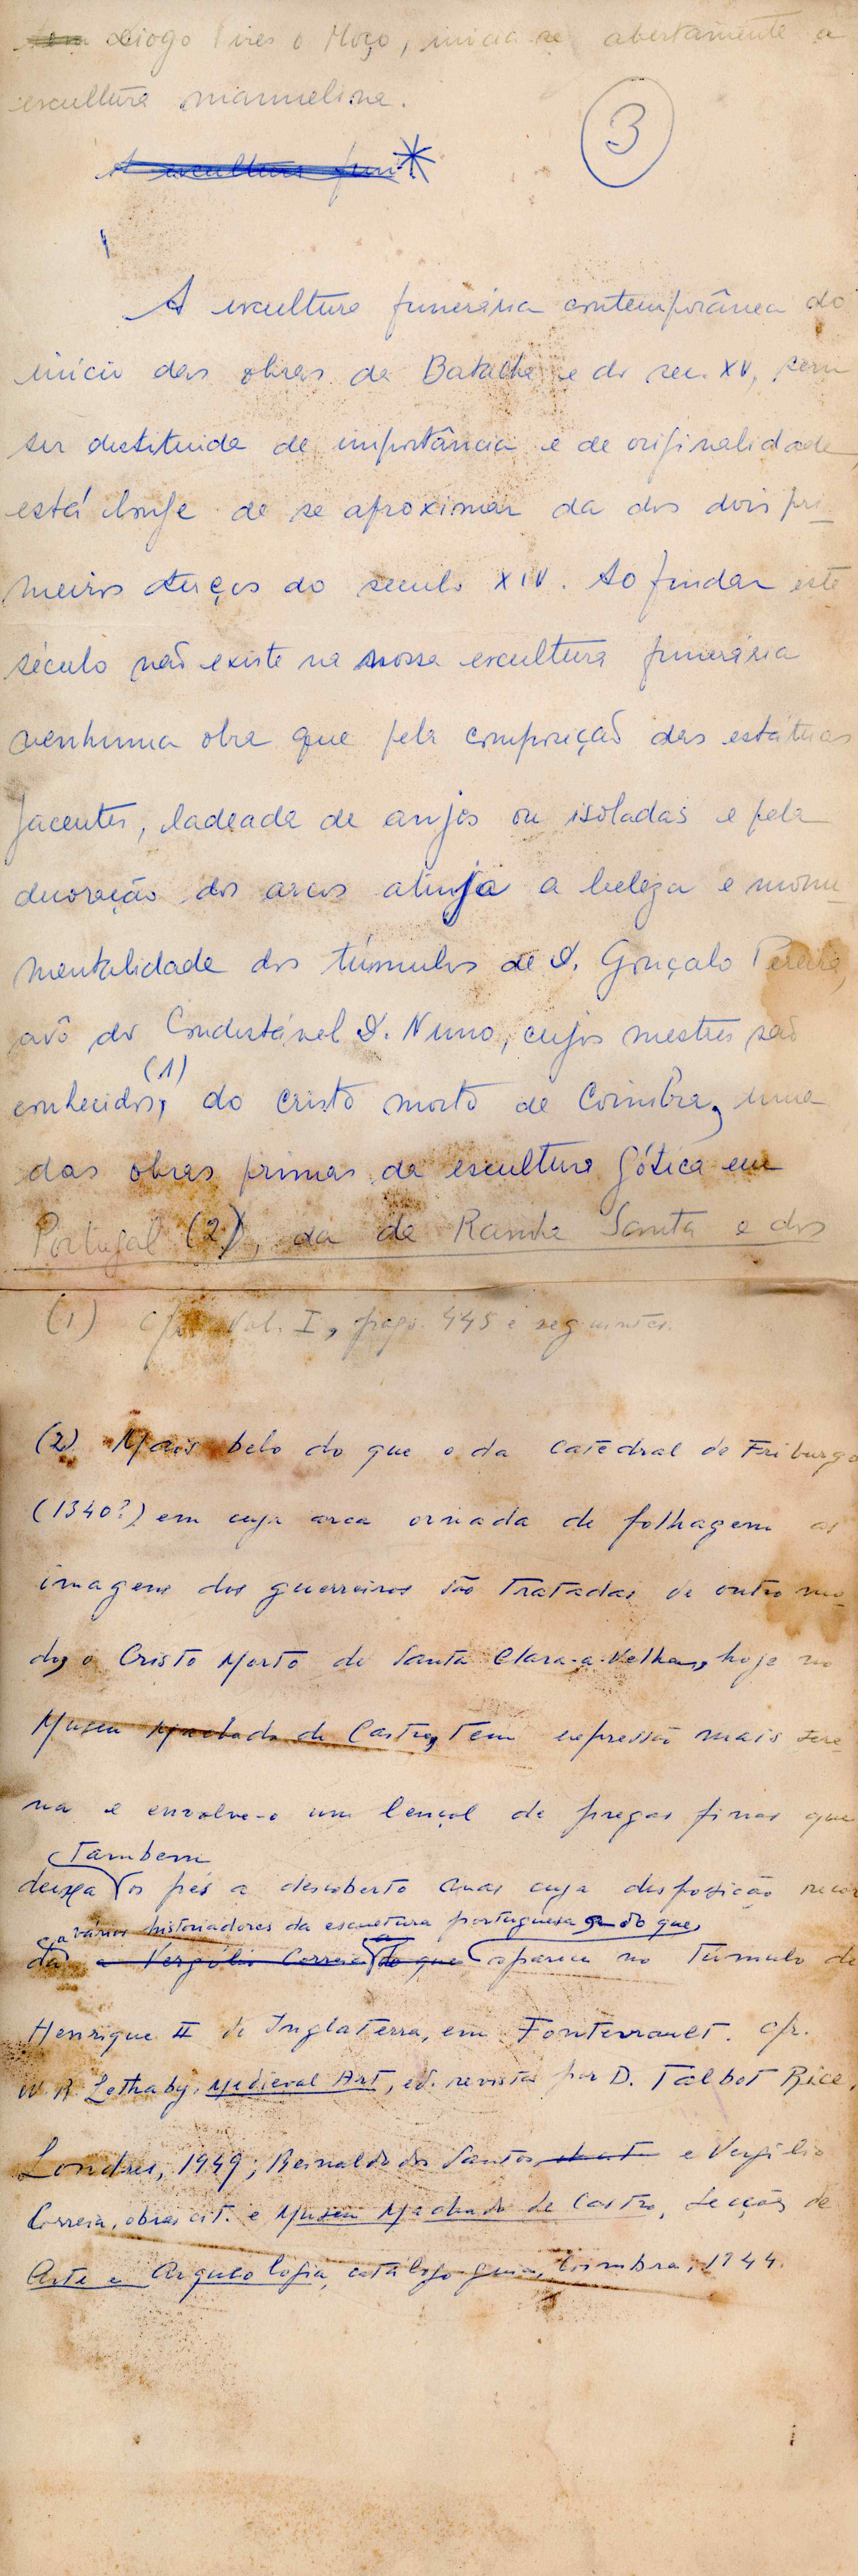 Diogo Pires o Moço, inicia-se abertamente a
escultura manuelina.
3
A escultura fun
A escultura funerária contemporânea do
início das obras da Batalha e do sec. XV, sem
ser destituida de importância e de originalidade,
está longe de se aproximar da dos dois pri-
meiros terços do seculo XIV. Ao findar este
século não existe na nossa escultura funerária
nenhuma obra que pela composição das estátuas
jacentes, ladeada de anjos ou isoladas e pela
decoração dos arcas atinja a beleza e monu-
mentalidade dos túmulos de D. Gonçalo Pereira,
avô do Condestável D. Nuno, cujos mestres são
(1)
conhecidos, do cristo morto de Coimbra, uma
das obras primas da escultura gótica em
Portugal (2), da de Rainha Santa e dos
(1) Cfr. Vol. I, pags. 445 e seguintes.
(2) Mais belo do que o da Catedral de Friburgo
(1340?) em cuja arca ornada de folhagem as
imagens dos guerreiros são tratadas de outro mo-
do, o Cristo Morto de Santa Clara-a-Velha, hoje no
Museu Machado de Castro, tem expressão mais sere-
na e envolve-o um lençol de pregas finas que
Tambem
deixa os pés a descoberto cuja disposição recor
a vários historiadores da escultura portuguesa a do que
da a Vergílio Correia do que aparece no Túmulo de
Henrique II de Inglaterra, em Fontevrault. Cfr.
W. R. Lethaby, Medieval Art, ed. revista por D. Talbot Rice,
Londres, 1949; Reinaldo dos Santos e Vergílio
Correia, obras cit. e Museu Machado de Castro, Secções de
Arte e Arqueologia, catálogo-guia, Coimbra, 1944.